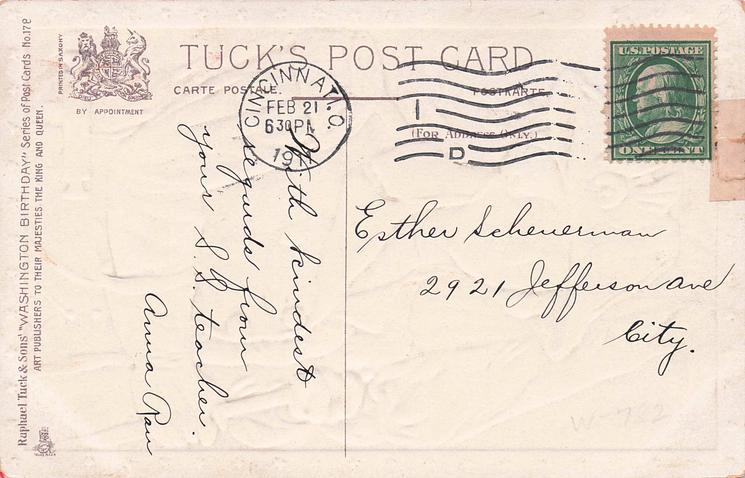 TUCK'S POST CARD
CARTE POSTALE.
POSTKARTE
(For Address Only.)
PRINTED IN SAXONY
BY APPOINTMENT
Raphael Tuck & Sons' "WASHINGTON BIRTHDAY" Series of Post Cards No. 178
ART PUBLISHERS TO THEIR MAJESTIES THE KING AND QUEEN.
CINCINNATI, O.
FEB 21
630PM
191
1
D
U.S. POSTAGE
ONE CENT
With kindest
regards from
your S.S. teacher.
Anna Rau
Esther Scheuerman
2921 Jefferson Ave
City.